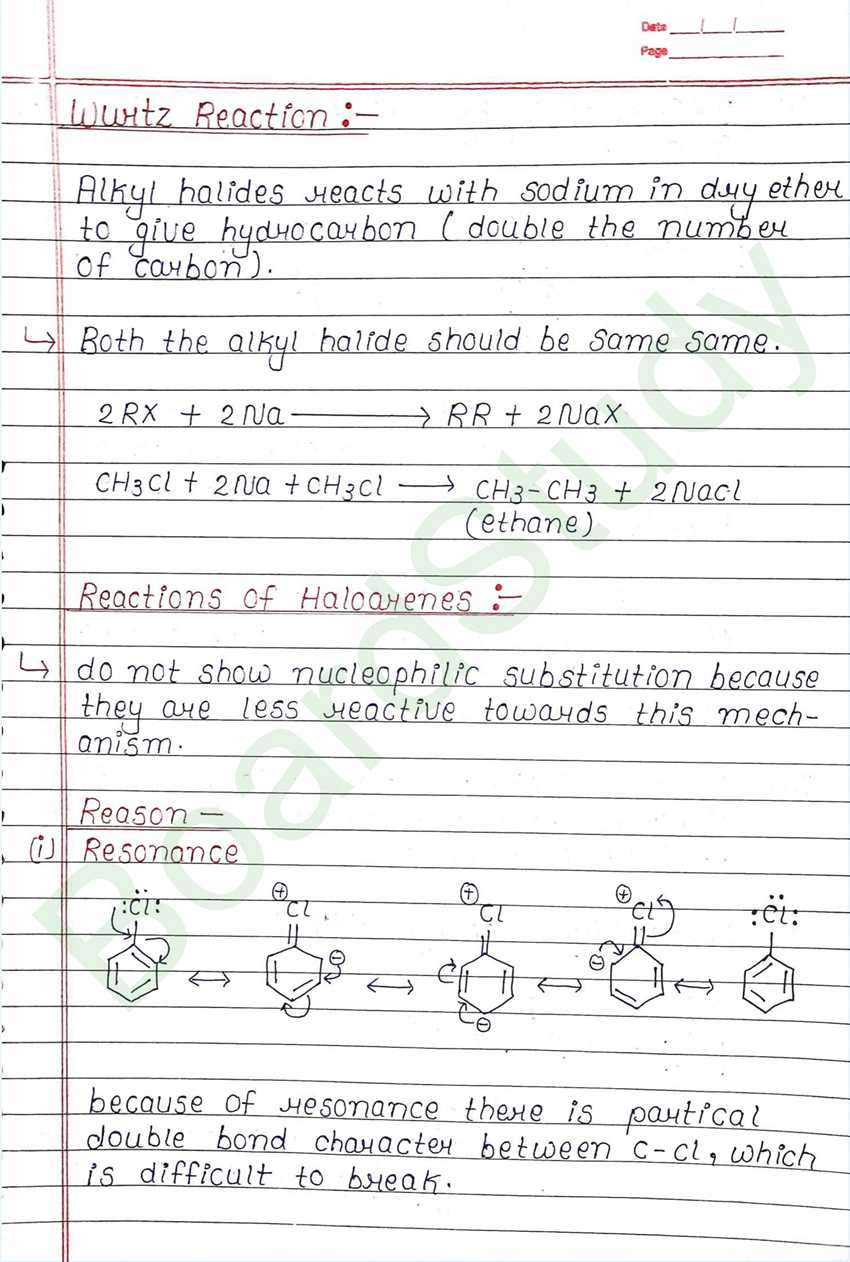 Date
Page
Wurtz Reaction :-
Alkyl halides reacts with sodium in dry ether
to give hydrocarbon ( double the number
of carbon).
↳ Both the alkyl halide should be same same.
2RX + 2Na ⟶ RR + 2NaX
CH3Cl + 2Na + CH3Cl ⟶ CH3-CH3 + 2Nacl
(ethane)
Reactions of Haloarenes :-
↳ do not show nucleophilic substitution because
they are less reactive towards this mech-
anism.
Reason -
(i) Resonance
:Cl: ⊕ Cl ⊕ Cl ⊕ Cl :Cl:
⊖ ⊖ ⊖
because of resonance there is partical
double bond character between C-Cl, which
is difficult to break.
BoardStudy